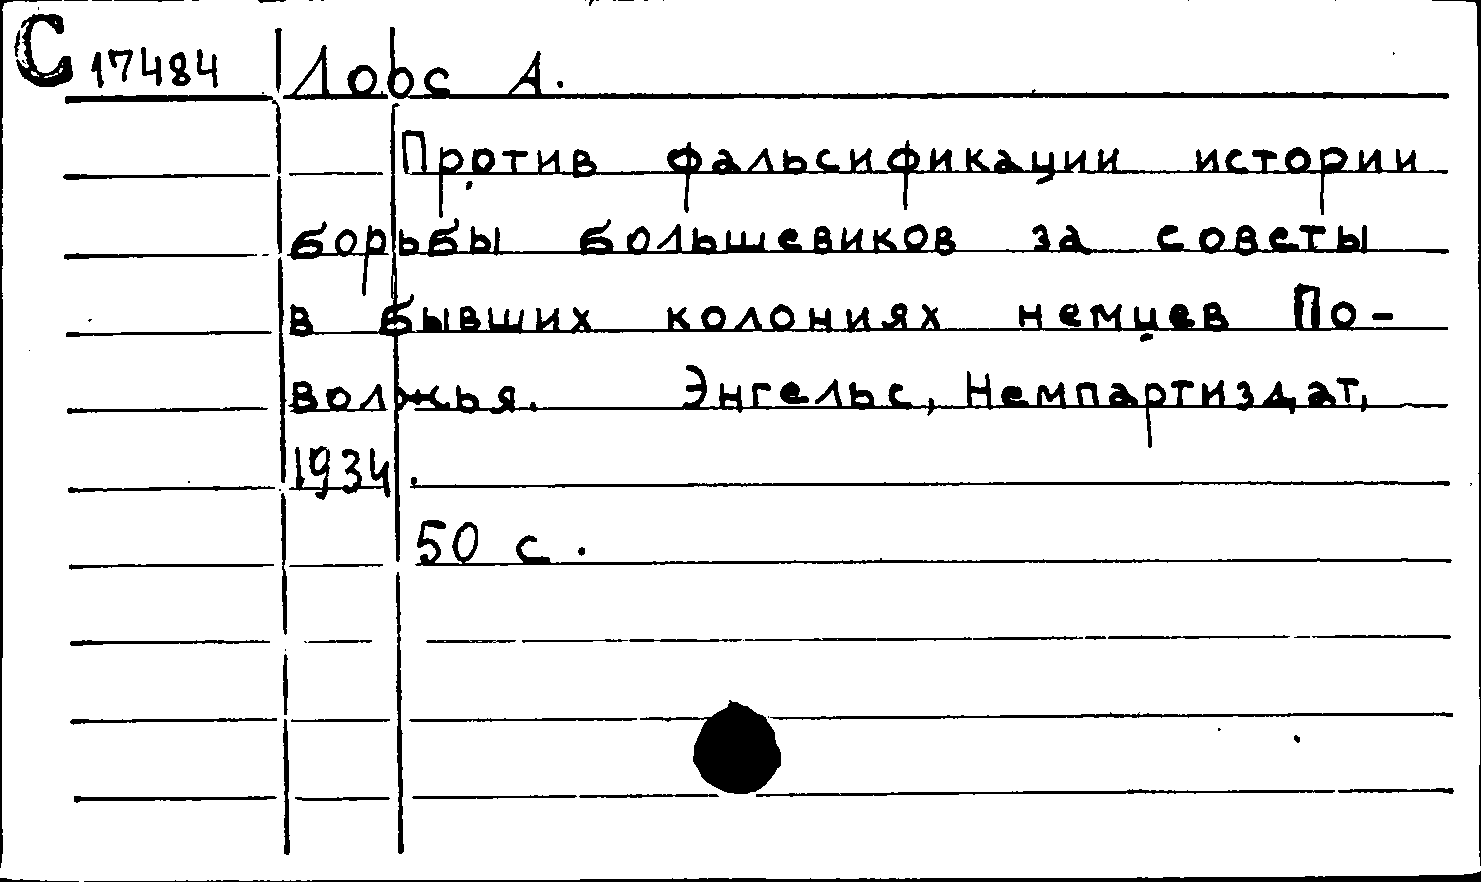 С 17484 Лоос А.
Против фальсификации истории
борьбы большевиков за советы
в бывших колониях немцев По-
волжья. Энгельс, Немпартиздат,
1934.
50 с.